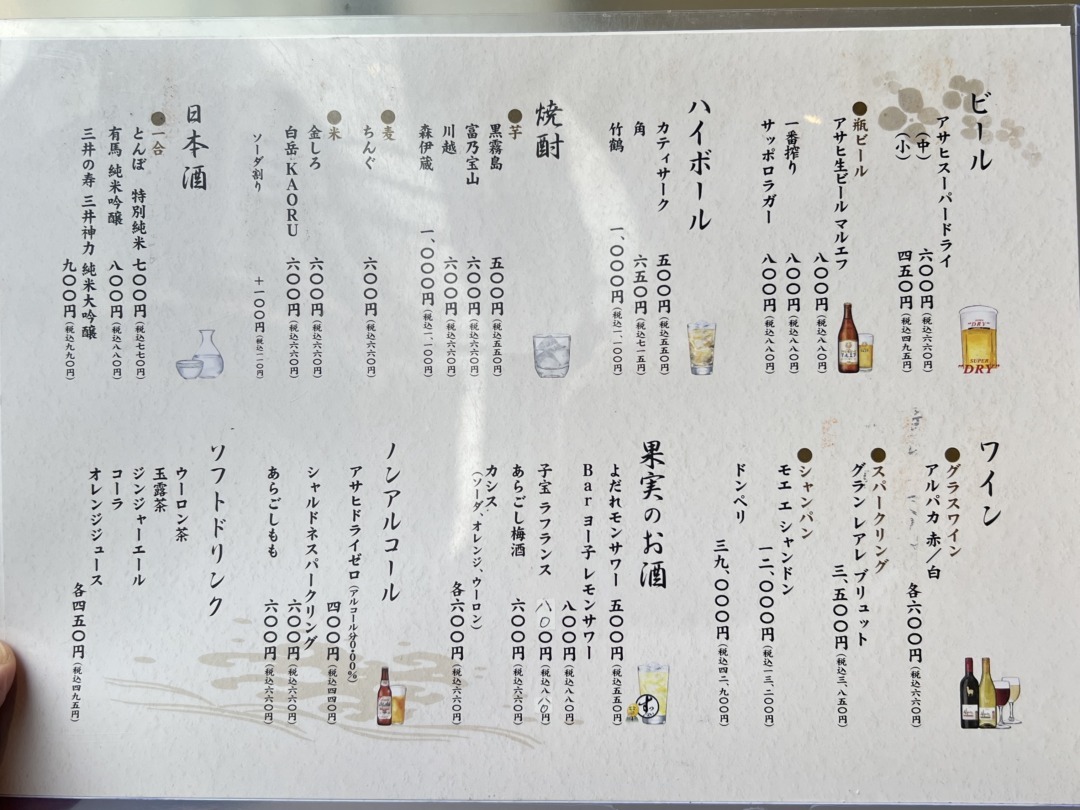 ビール
アサヒスーパードライ
（中） 六〇〇円（税込六六〇円）
（小） 四五〇円（税込四九五円）
●瓶ビール
アサヒ生ビール マルエフ 八〇〇円（税込八八〇円）
一番搾り 八〇〇円（税込八八〇円）
サッポロラガー 八〇〇円（税込八八〇円）
"DRY"
SUPER
"DRY"
ハイボール
カティサーク 五〇〇円（税込五五〇円）
角 六五〇円（税込七一五円）
竹鶴 一、〇〇〇円（税込一、一〇〇円）
焼酎
●芋
黒霧島 五〇〇円（税込五五〇円）
富乃宝山 六〇〇円（税込六六〇円）
川越 六〇〇円（税込六六〇円）
森伊蔵 一、〇〇〇円（税込一、一〇〇円）
●麦
ちんぐ 六〇〇円（税込六六〇円）
●米
金しろ 六〇〇円（税込六六〇円）
白岳 KAORU 六〇〇円（税込六六〇円）
ソーダ割り ＋一〇〇円（税込一一〇円）
日本酒
●一合
とんぼ 特別純米 七〇〇円（税込七七〇円）
有馬 純米吟醸 八〇〇円（税込八八〇円）
三井の寿 三井神力 純米大吟醸
九〇〇円（税込九九〇円）
ワイン
●グラスワイン
アルパカ 赤／白 各六〇〇円（税込六六〇円）
●スパークリング
グラン レアレ ブリュット
三、五〇〇円（税込三、八五〇円）
●シャンパン
モエ エ シャンドン
一二、〇〇〇円（税込一三、二〇〇円）
ドンペリ
三九、〇〇〇円（税込四二、九〇〇円）
果実のお酒
よだれモンサワー 五〇〇円（税込五五〇円）
Bar ヨー子 レモンサワー
八〇〇円（税込八八〇円）
子宝 ラフランス 八〇〇円（税込八八〇円）
あらごし梅酒 六〇〇円（税込六六〇円）
カシス
（ソーダ、オレンジ、ウーロン）
各六〇〇円（税込六六〇円）
ノンアルコール
アサヒドライゼロ（アルコール分0.00%）
四〇〇円（税込四四〇円）
シャルドネスパークリング
六〇〇円（税込六六〇円）
あらごしもも 六〇〇円（税込六六〇円）
ソフトドリンク
ウーロン茶
玉露茶
ジンジャーエール
コーラ
オレンジジュース
各四五〇円（税込四九五円）